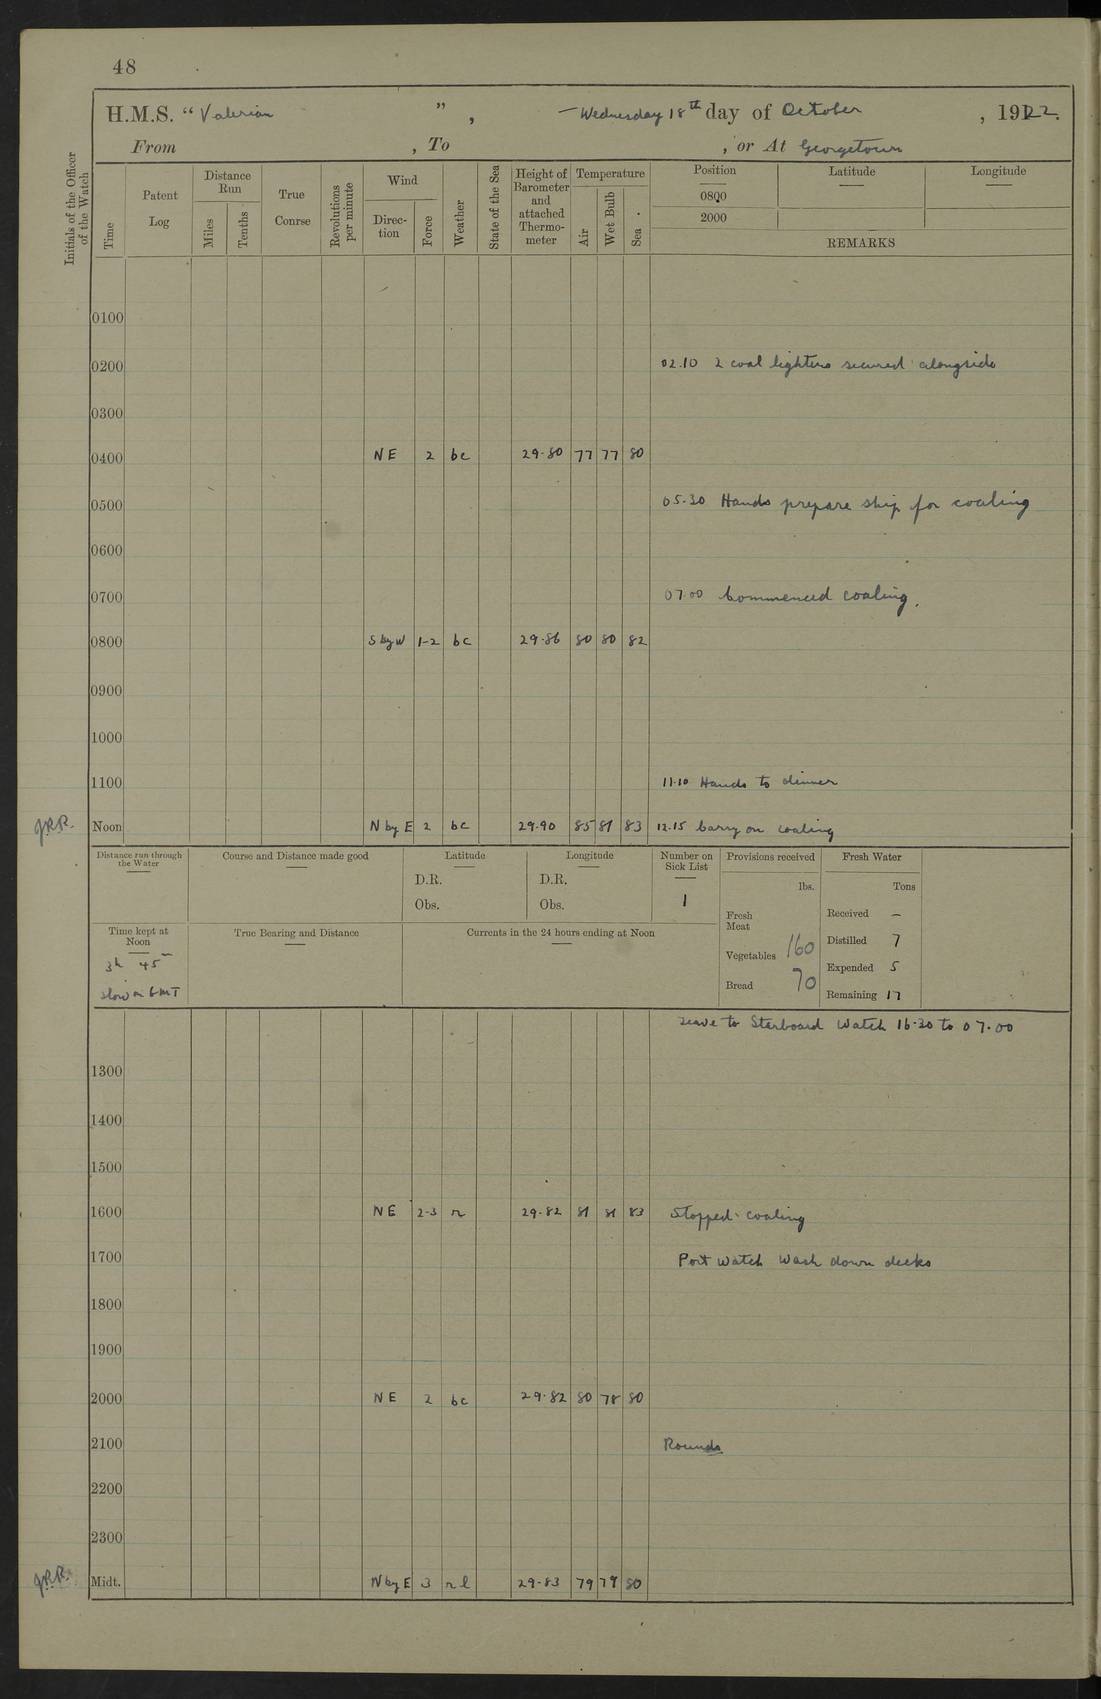 48
H.M.S. "Valerian", Wednesday 18th day of October, 1922.
From , To , or At Georgetown
Initials of the Officer of the Watch
Time
Patent Log
Distance Run
Miles
Tenths
True Course
Revolutions per minute
Wind
Direc-tion
Force
Weather
State of the Sea
Height of Barometer and attached Thermo-meter
Temperature
Air
Wet Bulb
Sea.
Position
Latitude
Longitude
0800
2000
REMARKS
0100
0200 02.10 2 coal lighters secured alongside
0300
0400 NE 2 bc 29.80 77 77 80
0500 05.30 Hands prepare ship for coaling
0600
0700 07.00 Commenced coaling.
0800 S by W 1-2 bc 29.86 80 80 82
0900
1000
1100 11.10 Hands to dinner
J.R.R. Noon N by E 2 bc 29.90 85 81 83 12.15 Carry on coaling
Distance run through the Water
Course and Distance made good
Latitude
D.R.
Obs.
Longitude
D.R.
Obs.
Number on Sick List
1
Provisions received
lbs.
Fresh Meat
Vegetables 160
Bread 70
Fresh Water
Tons
Received —
Distilled 7
Expended 5
Remaining 17
Time kept at Noon
3h 45m
slow on GMT
True Bearing and Distance
Currents in the 24 hours ending at Noon
Leave to Starboard Watch 16.30 to 07.00
1300
1400
1500
1600 NE 2-3 r 29.82 81 81 83 Stopped coaling
1700 Port Watch Wash down decks
1800
1900
2000 NE 2 bc 29.82 80 78 80
2100 Rounds
2200
2300
J.R.R. Midt. N by E 3 rl 29.83 79 79 80